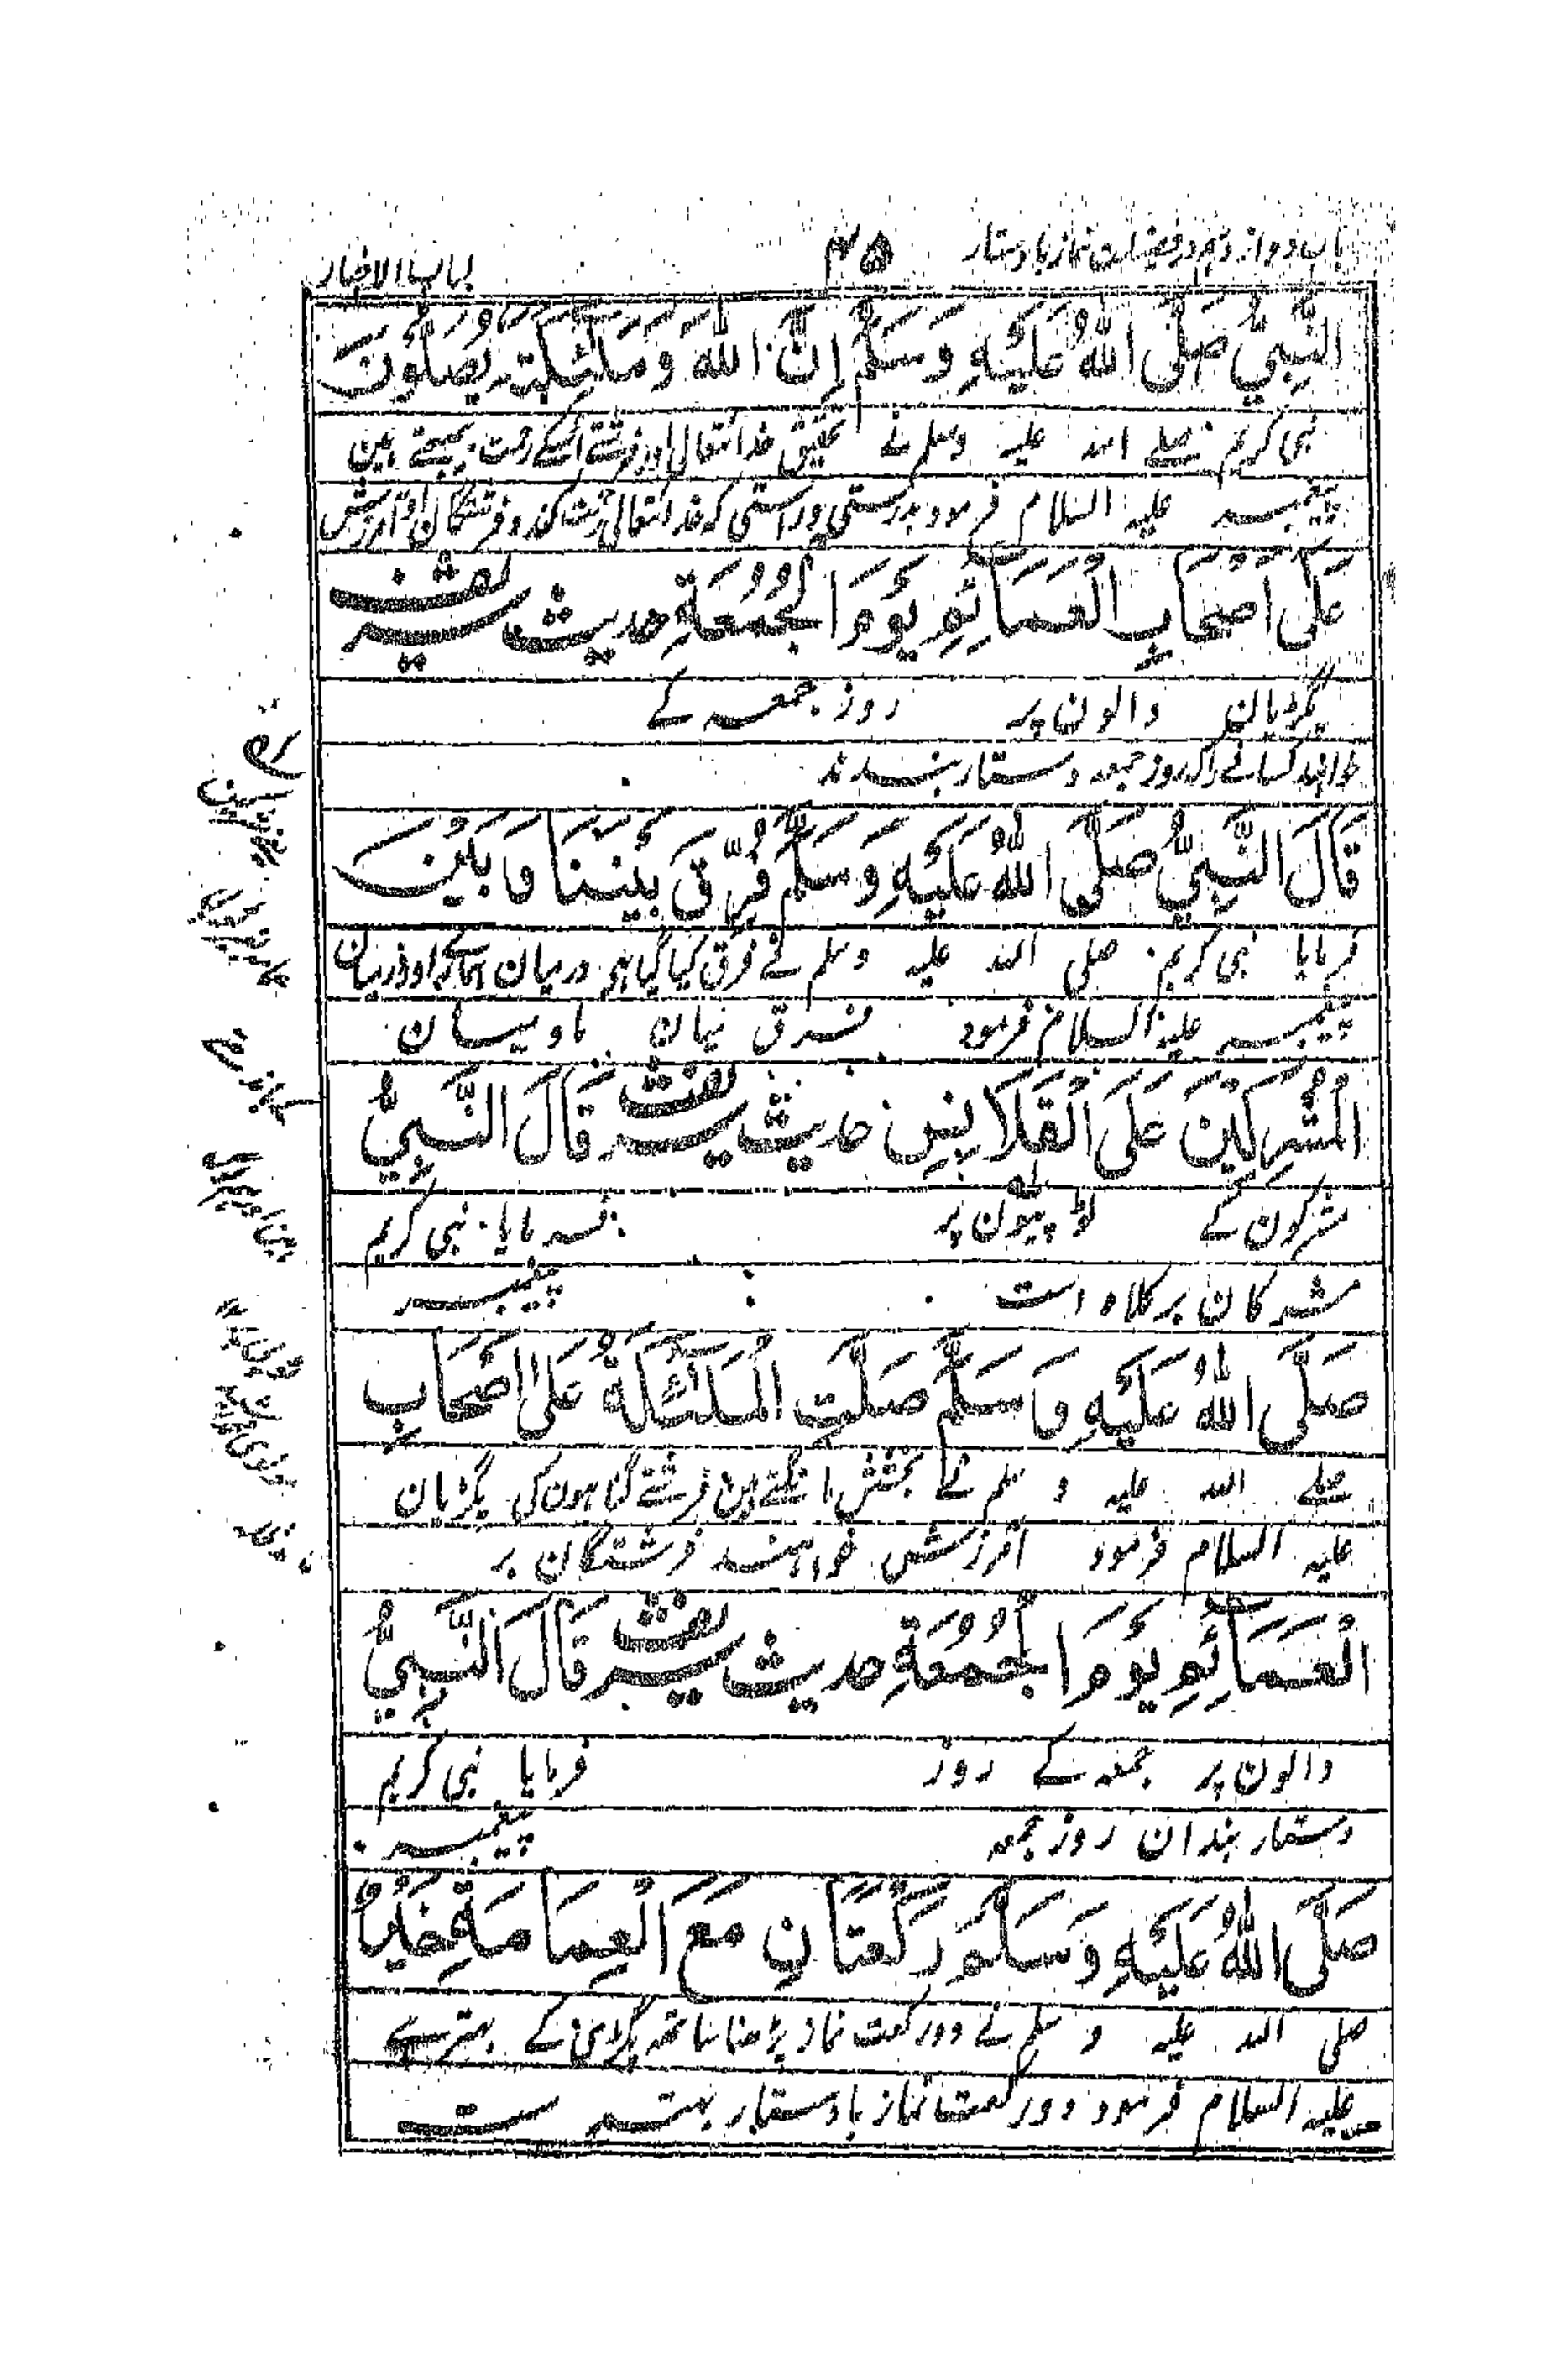 باب دوازدہم در فضیلت نماز با دستار ۴۵ لباب الاخبار
النَّبِيُّ صَلَّى اللهُ عَلَيْهِ وَسَلَّمَ إِنَّ اللهَ وَمَلٰئِكَتَهُ يُصَلُّوْنَ
نبی کریم صلے اللہ علیہ وسلم نے تحقیق خدا تعالی اور فرشتے اسکے رحمت بھیجتے ہین
پیغمبر علیہ السلام فرمود بدرستی وراستی کہ خدا تعالی رحمت کند و فرشتگان او آمرزش
عَلٰى اَصْحَابِ الْعَمَائِمِ يَوْمَ الْجُمُعَةِ حدیث شریف
پگڑیان والون پر روز جمعہ کے
خواہند کسانے را کہ روز جمعہ دستار بندند
قَالَ النَّبِيُّ صَلَّى اللهُ عَلَيْهِ وَسَلَّمَ فُرِّقَ بَيْنَنَا وَبَيْنَ
فرمایا نبی کریم صلی اللہ علیہ وسلم نے فرق کیا گیا ہی درمیان ہمارے اور درمیان
پیغمبر علیہ السلام فرمود فرق میان ما و میان
الْمُشْرِكِيْنَ عَلَى الْقَلَانِسِ حدیث شریف قَالَ النَّبِيُّ
مشرکون کے ٹوپیون پر فرمایا نبی کریم
مشرکان بر کلاہ است پیغمبر
صَلَّى اللهُ عَلَيْهِ وَسَلَّمَ صَلَّتِ الْمَلٰئِكَةُ عَلٰى اَصْحَابِ
صلے اللہ علیہ و سلم نے بخشش مانگتے ہین فرشتے گناہون کی پگڑیان
علیہ السلام فرمود آمرزش خواہند فرشتگان بر
الْعَمَائِمِ يَوْمَ الْجُمُعَةِ حدیث شریف قَالَ النَّبِيُّ
والون پر جمعہ کے روز فرمایا نبی کریم
دستار بندان روز جمعہ پیغمبر
صَلَّى اللهُ عَلَيْهِ وَسَلَّمَ رَكْعَتَانِ مَعَ الْعِمَامَةِ خَيْرٌ
صلی اللہ علیہ و سلم نے دو رکعت نماز پڑھنا ساتھ پگڑی کے بہتر ہے
علیہ السلام فرمود دو رکعت نماز با دستار بہتر ست